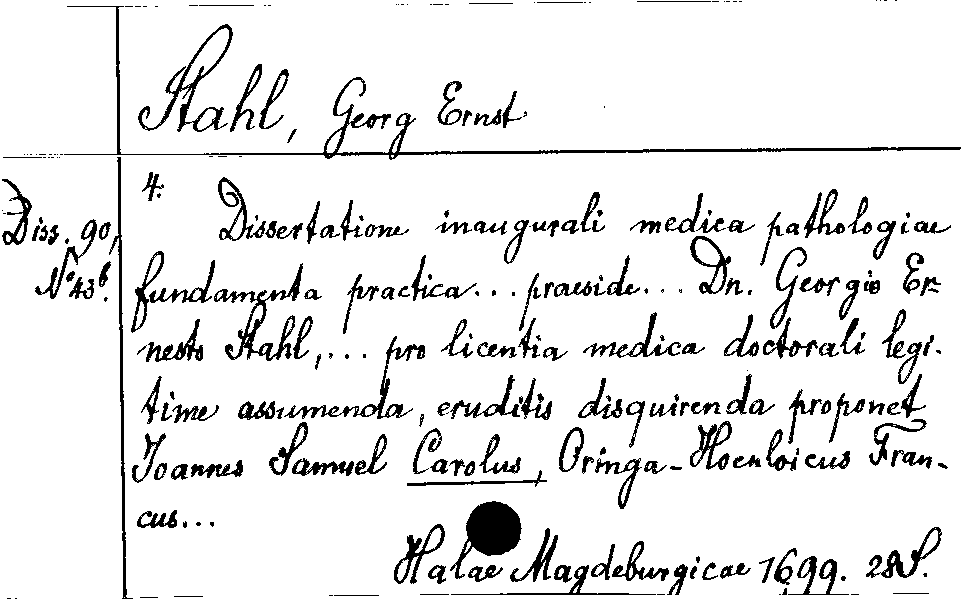 Stahl, Georg Ernst
Diss. 90,
N° 43b.
4.
Dissertatione inaugurali medica pathologiae
fundamenta practica... praeside... Dn. Georgio Er=
nesto Stahl,... pro licentia medica doctorali legi-
time assumenda, eruditis disquirenda proponet
Joannes Samuel Carolus, Oringa-Hoenloicus Fran-
cus...
Halae Magdeburgicae 1699. 28 S.